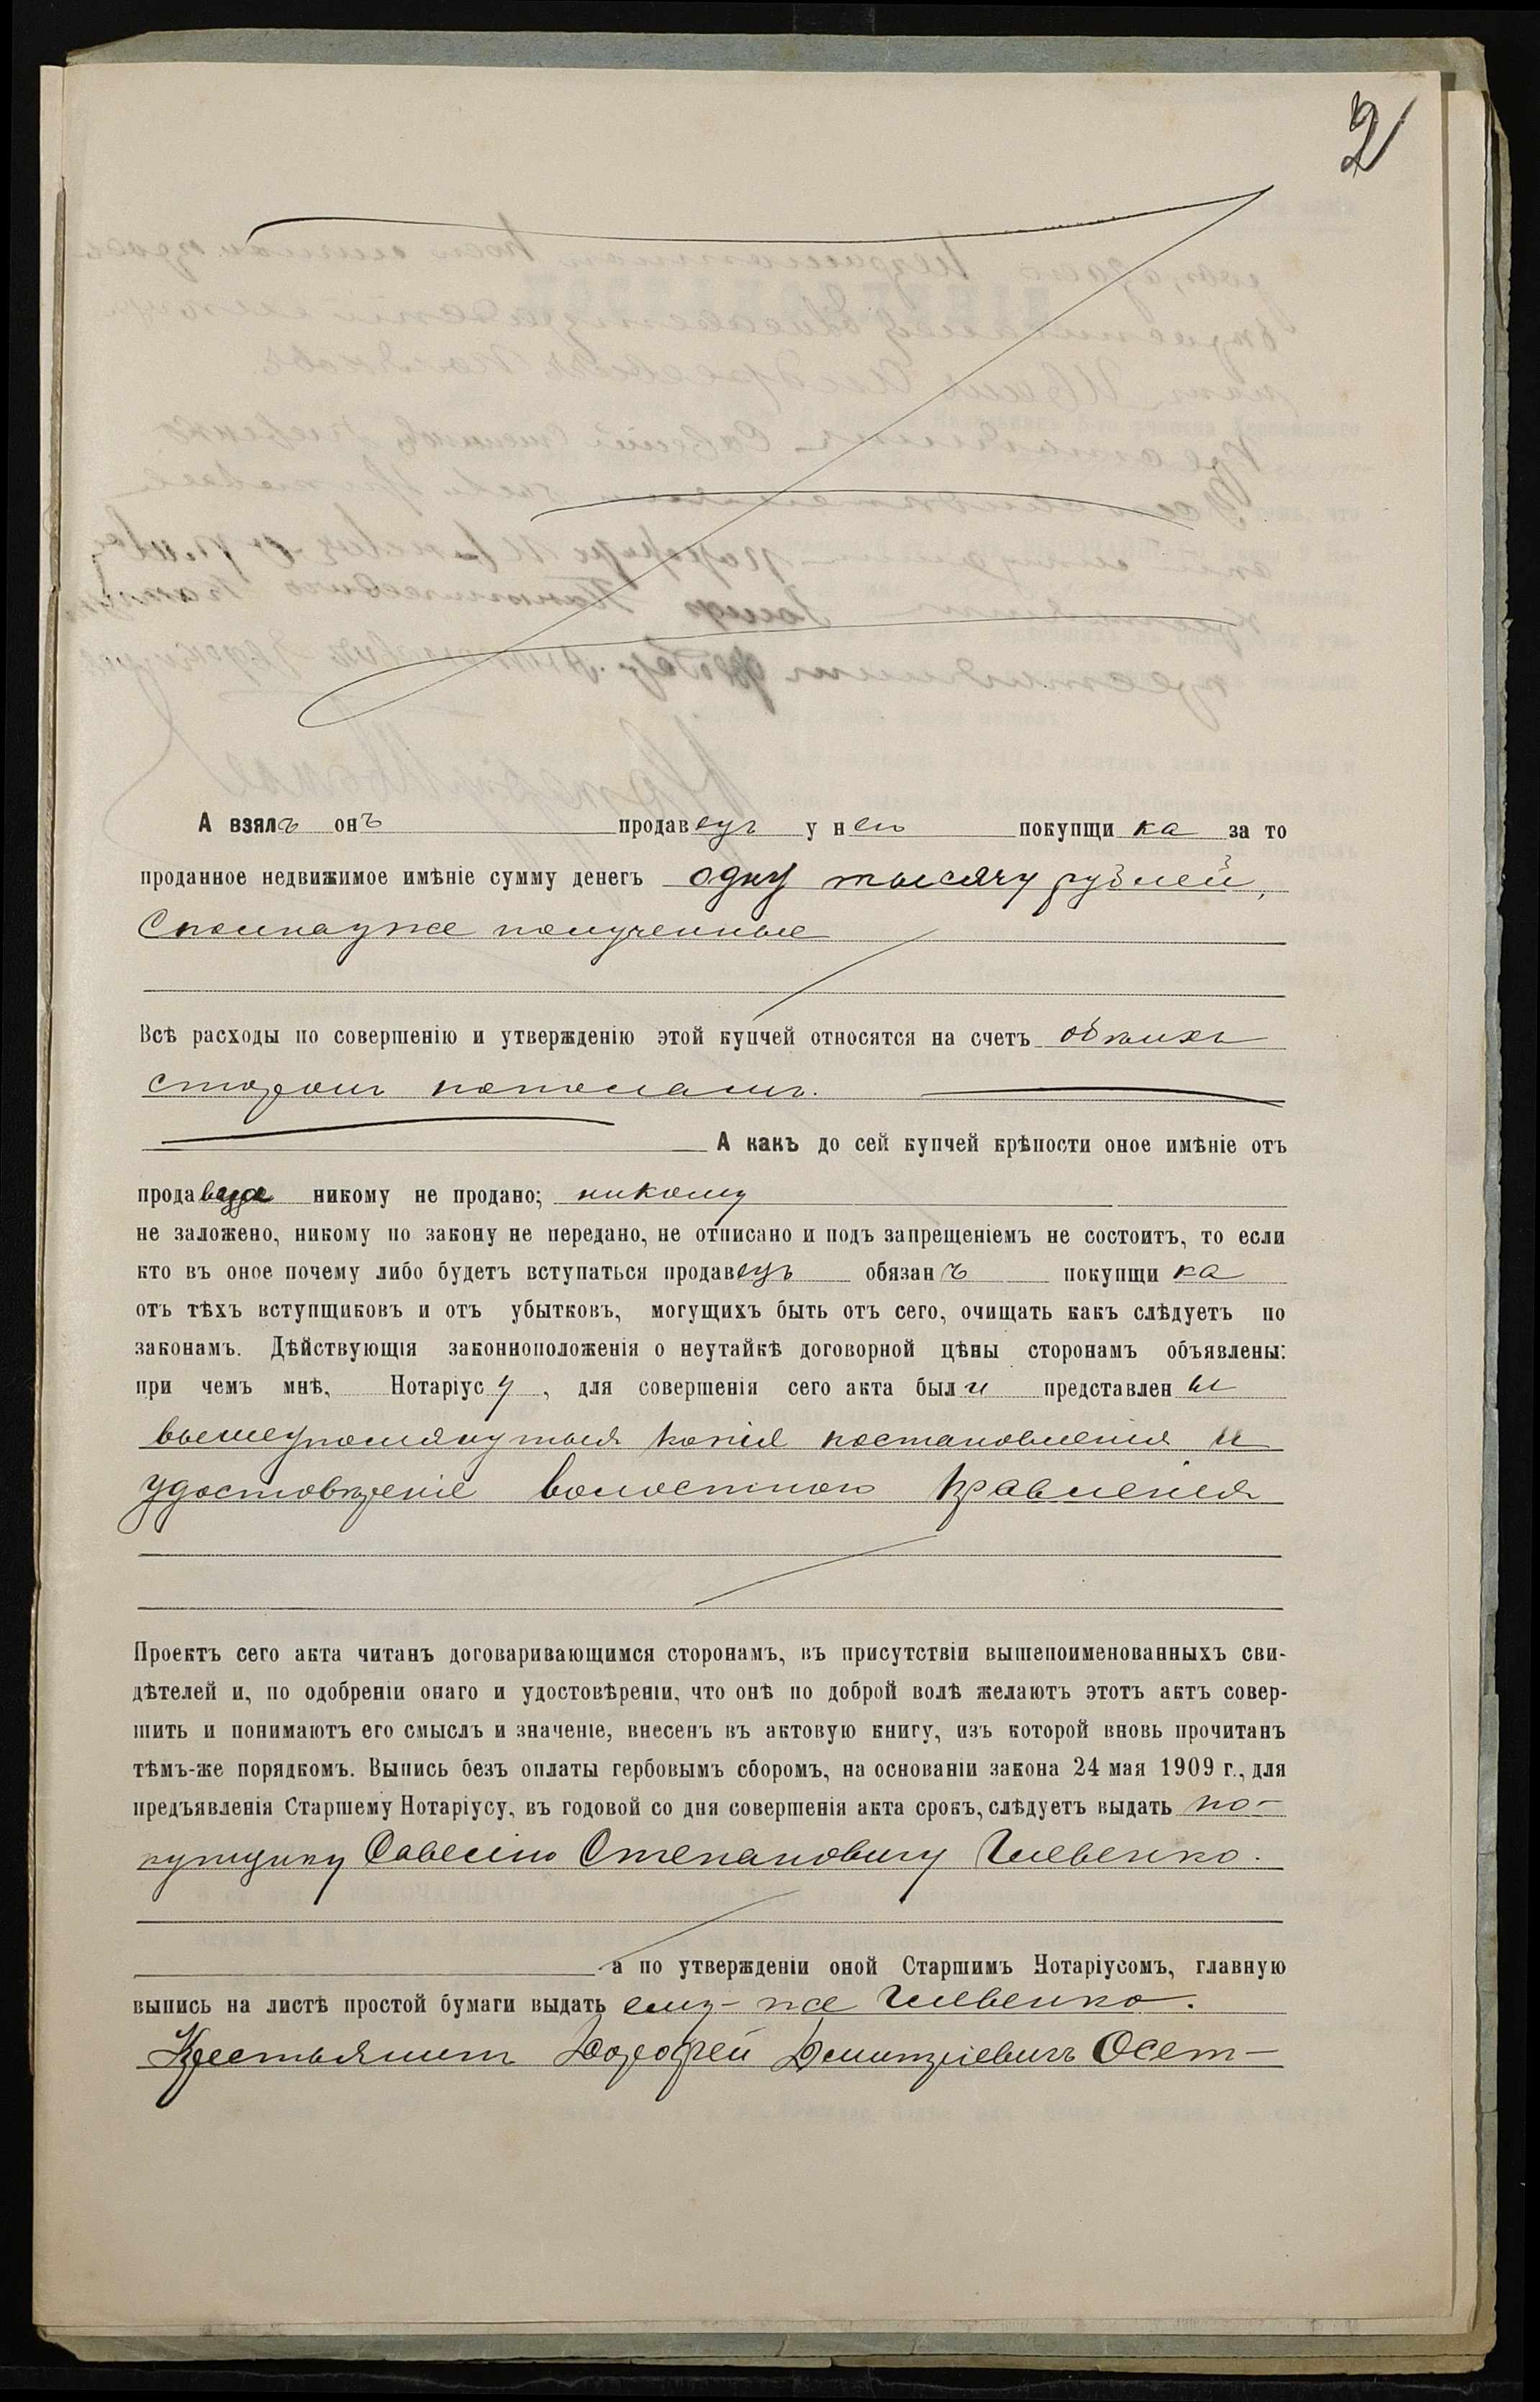 2
А взялъ онъ продавецъ у него покупщика за то
проданное недвижимое имѣніе сумму денегъ одну тысячу рублей,
сполна уже полученные
Всѣ расходы по совершенію и утвержденію этой купчей относятся на счетъ обѣихъ
сторонъ пополамъ.
А какъ до сей купчей крѣпости оное имѣніе отъ
продавца никому не продано; никому
не заложено, никому по закону не передано, не отписано и подъ запрещеніемъ не состоитъ, то если
кто въ оное почему либо будетъ вступаться продавецъ обязанъ покупщика
отъ тѣхъ вступщиковъ и отъ убытковъ, могущихъ быть отъ сего, очищать какъ слѣдуетъ по
законамъ. Дѣйствующія законноположенія о неутайкѣ договорной цѣны сторонамъ объявлены:
при чемъ мнѣ, Нотаріусу, для совершенія сего акта были представлены
вышеупомянутыя копія постановленія и
удостовѣреніе волостного правленія
Проектъ сего акта читанъ договаривающимся сторонамъ, въ присутствіи вышепоименованныхъ сви-
дѣтелей и, по одобреніи онаго и удостовѣреніи, что онѣ по доброй волѣ желаютъ этотъ актъ совер-
шить и понимаютъ его смыслъ и значеніе, внесенъ въ актовую книгу, изъ которой вновь прочитанъ
тѣмъ-же порядкомъ. Выпись безъ оплаты гербовымъ сборомъ, на основаніи закона 24 мая 1909 г., для
предъявленія Старшему Нотаріусу, въ годовой со дня совершенія акта срокъ, слѣдуетъ выдать по-
купщику Савелію Степановичу
а по утвержденіи оной Старшимъ Нотаріусомъ, главную
выпись на листѣ простой бумаги выдать ему-же
Крестьянинъ Дорофей Димитріевичъ Осет-